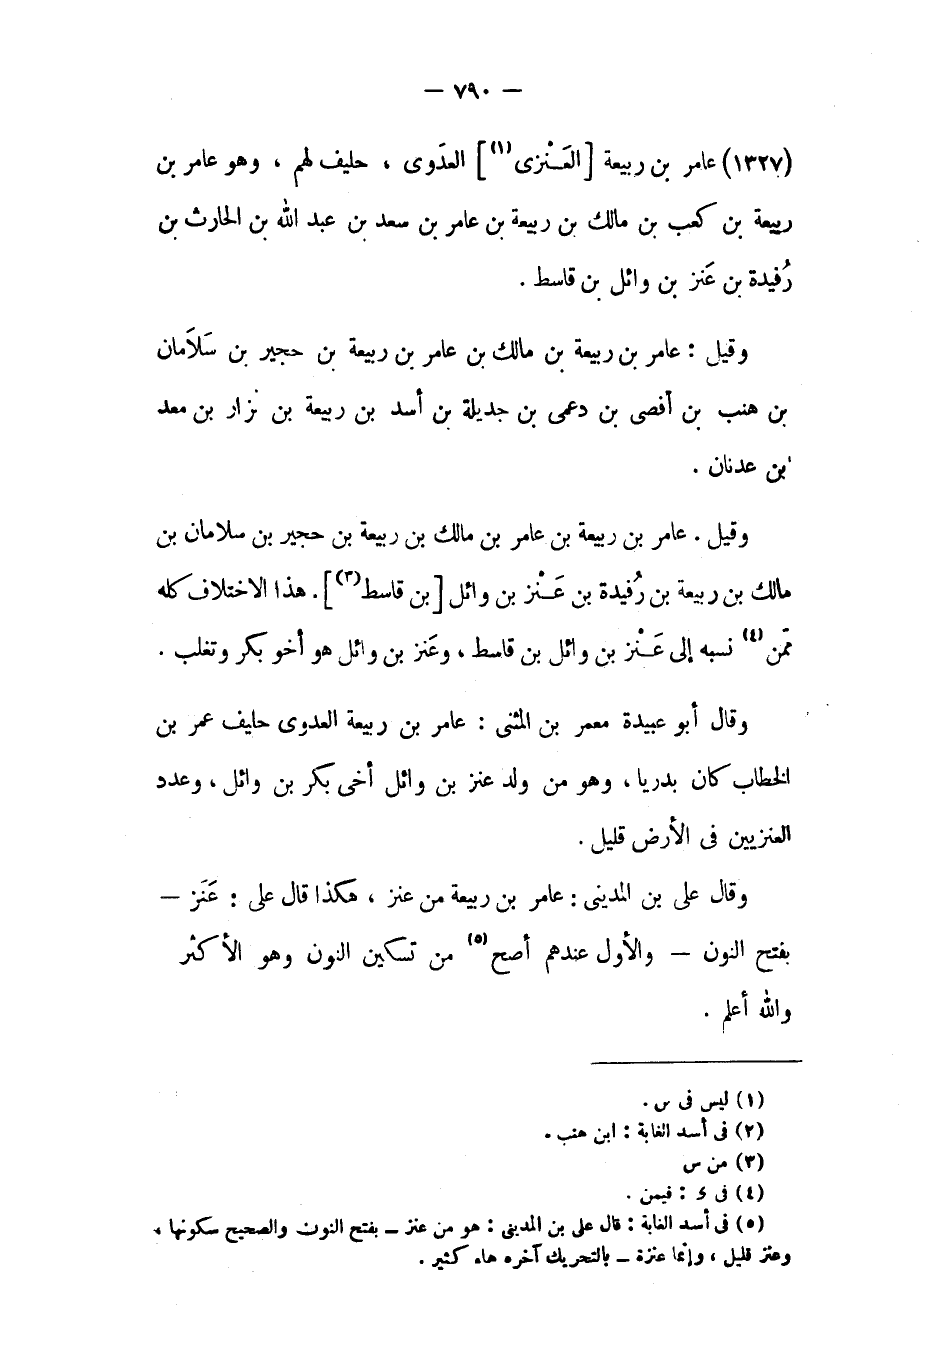 — ٧٩٠ —
(١٣٢٧) عامر بن ربيعة [العَنْزى(١)] العدَوى ، حليف لهم ، وهو عامر بن
ربيعة بن كعب بن مالك بن ربيعة بن عامر بن سعد بن عبد الله بن الحارث بن
رُفيدة بن عَنز بن وائل بن قاسط .
وقيل : عامر بن ربيعة بن مالك بن عامر بن ربيعة بن حجير بن سَلاَمان
بن هنب بن أفصى بن دعمى بن جديلة بن أسد بن ربيعة بن نزار بن معد
بن عدنان .
وقيل . عامر بن ربيعة بن عامر بن مالك بن ربيعة بن حجير بن سلامان بن
مالك بن ربيعة بن رُفيدة بن عَنْز بن وائل [بن قاسط(٣)] . هذا الاختلاف كله
ممّن(٤) نسبه إلى عَنْز بن وائل بن قاسط ، وعَنز بن وائل هو أخو بكر وتغلب .
وقال أبو عبيدة معمر بن المثنى : عامر بن ربيعة العدوى حليف عمر بن
الخطاب كان بدريا ، وهو من ولد عنز بن وائل أخى بكر بن وائل ، وعدد
العنزيين فى الأرض قليل .
وقال على بن المدينى : عامر بن ربيعة من عنز ، هكذا قال على : عَنَز —
بفتح النون — والأول عندهم أصح(٥) من تسكين النون وهو الأكثر
والله أعلم .
(١) ليس فى س .
(٢) فى أسد الغابة : ابن هنب .
(٣) من س
(٤) فى ى : فيمن .
(٥) فى أسد الغابة : قال على بن المدينى : هو من عنز – بفتح النون والصحيح سكونها ،
وعنز قليل ، وإنما عنزة – بالتحريك آخره هاء كثير .